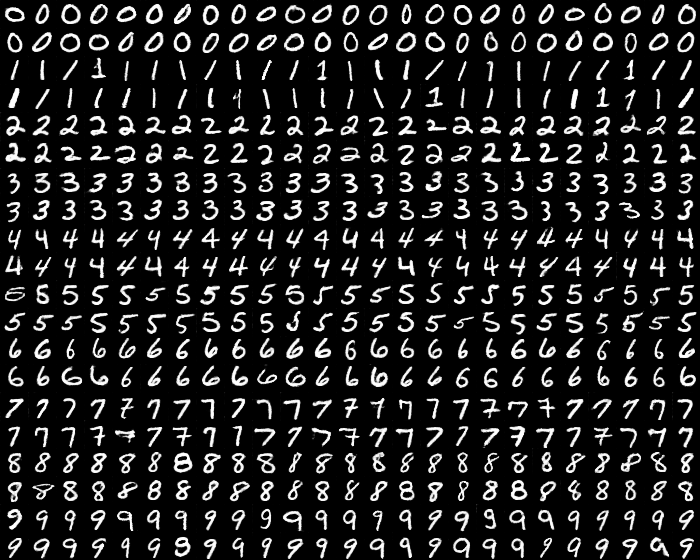 0 0 0 0 0 0 0 0 0 0 0 0 0 0 0 0 0 0 0 0 0 0 0 0 0
0 0 0 0 0 0 0 0 0 0 0 0 0 0 0 0 0 0 0 0 0 0 0 0 0
1 1 1 1 1 1 1 1 1 1 1 1 1 1 1 1 1 1 1 1 1 1 1 1 1
1 1 1 1 1 1 1 1 1 1 1 1 1 1 1 1 1 1 1 1 1 1 1 1 1
2 2 2 2 2 2 2 2 2 2 2 2 2 2 2 2 2 2 2 2 2 2 2 2 2
2 2 2 2 2 2 2 2 2 2 2 2 2 2 2 2 2 2 2 2 2 2 2 2 2
3 3 3 3 3 3 3 3 3 3 3 3 3 3 3 3 3 3 3 3 3 3 3 3 3
3 3 3 3 3 3 3 3 3 3 3 3 3 3 3 3 3 3 3 3 3 3 3 3 3
4 4 4 4 4 4 4 4 4 4 4 4 4 4 4 4 4 4 4 4 4 4 4 4 4
4 4 4 4 4 4 4 4 4 4 4 4 4 4 4 4 4 4 4 4 4 4 4 4 4
5 5 5 5 5 5 5 5 5 5 5 5 5 5 5 5 5 5 5 5 5 5 5 5 5
5 5 5 5 5 5 5 5 5 5 5 5 5 5 5 5 5 5 5 5 5 5 5 5 5
6 6 6 6 6 6 6 6 6 6 6 6 6 6 6 6 6 6 6 6 6 6 6 6 6
6 6 6 6 6 6 6 6 6 6 6 6 6 6 6 6 6 6 6 6 6 6 6 6 6
7 7 7 7 7 7 7 7 7 7 7 7 7 7 7 7 7 7 7 7 7 7 7 7 7
7 7 7 7 7 7 7 7 7 7 7 7 7 7 7 7 7 7 7 7 7 7 7 7 7
8 8 8 8 8 8 8 8 8 8 8 8 8 8 8 8 8 8 8 8 8 8 8 8 8
8 8 8 8 8 8 8 8 8 8 8 8 8 8 8 8 8 8 8 8 8 8 8 8 8
9 9 9 9 9 9 9 9 9 9 9 9 9 9 9 9 9 9 9 9 9 9 9 9 9
9 9 9 9 9 9 9 9 9 9 9 9 9 9 9 9 9 9 9 9 9 9 9 9 9